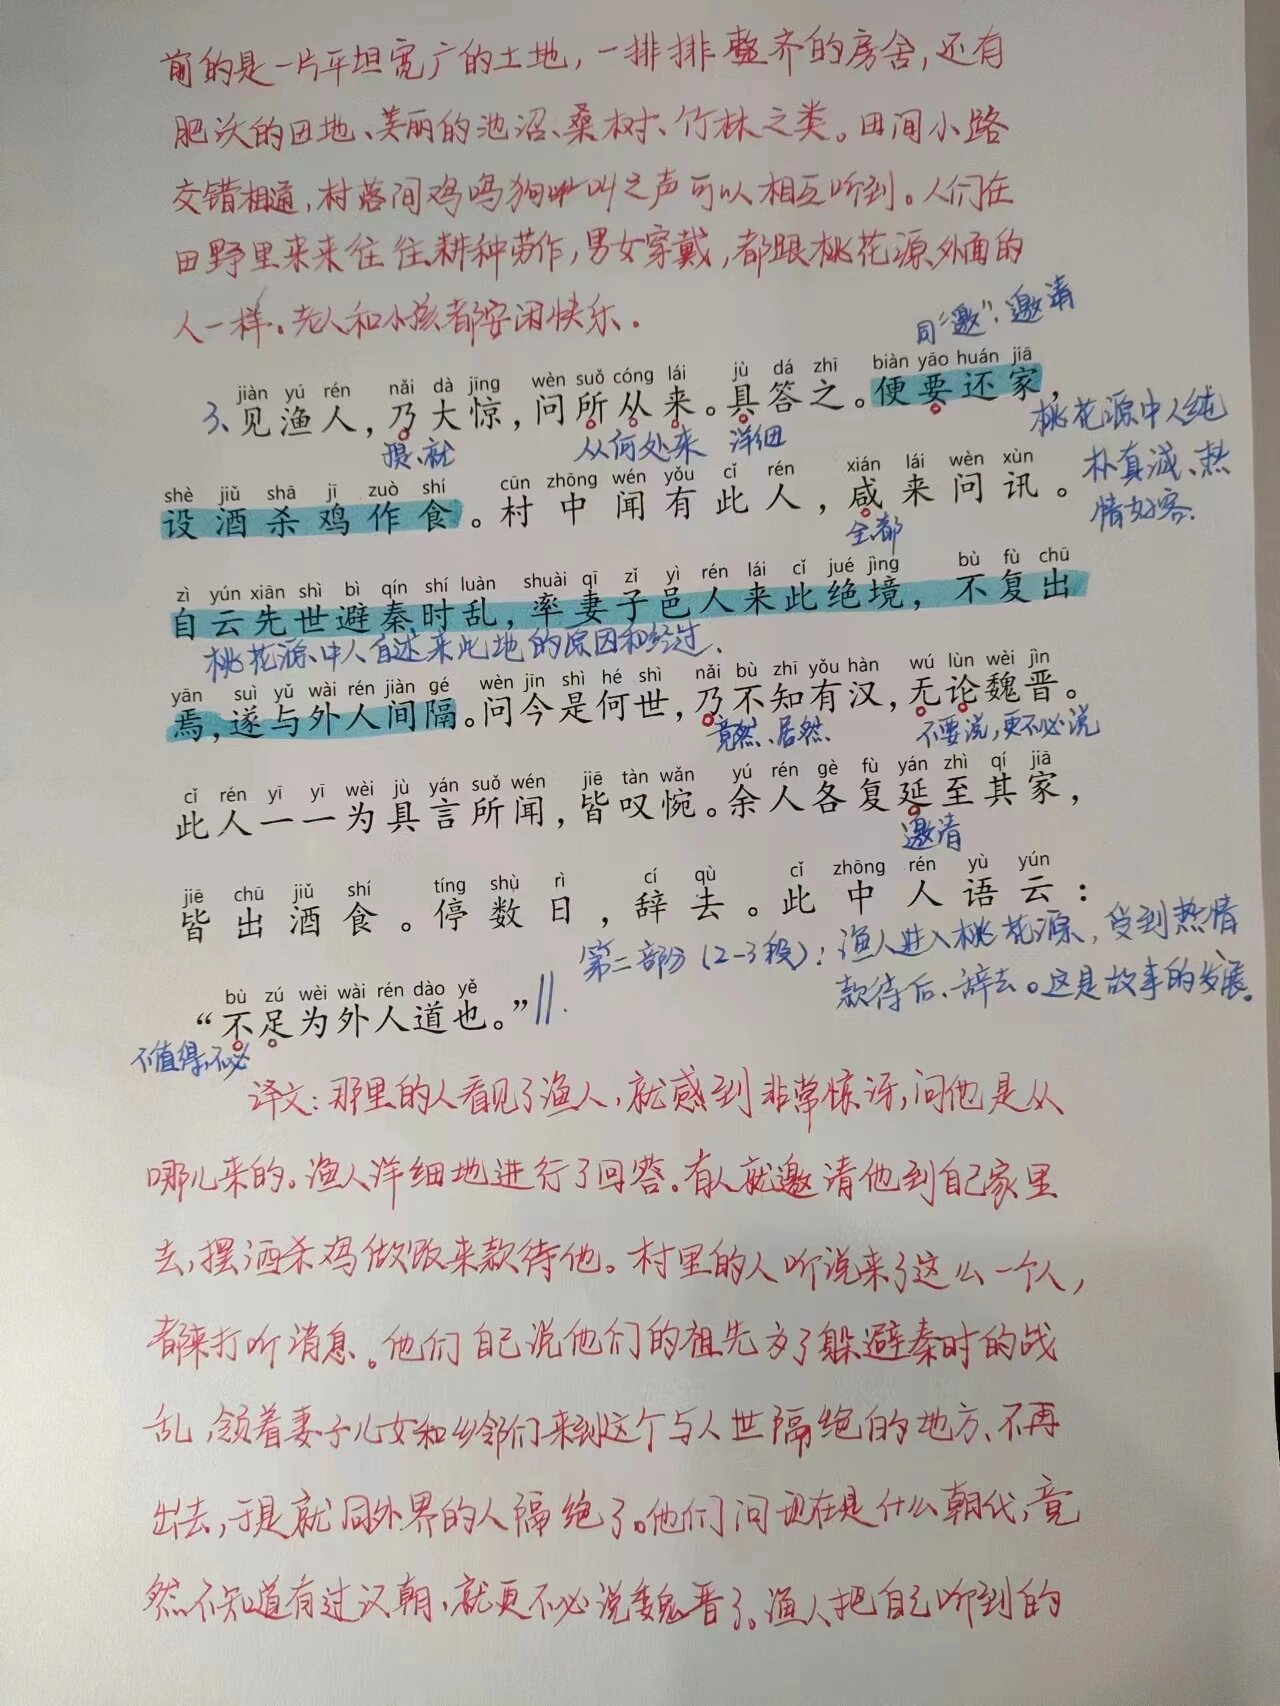 前的是一片平坦宽广的土地，一排排整齐的房舍，还有
肥沃的田地、美丽的池沼、桑树、竹林之类。田间小路
交错相通，村落间鸡鸣狗叫之声可以相互听到。人们在
田野里来来往往、耕种劳作，男女穿戴，都跟桃花源外面的
人一样。老人和小孩都安闲快乐.
同“邀”，邀请
jiàn yú rén nǎi dà jīng wèn suǒ cóng lái jù dá zhī biàn yāo huán jiā
3、见渔人，乃大惊，问所从来。具答之。便要还家，
于是、就 从何处来 详细
桃花源中人纯
朴真诚、热
情好客.
shè jiǔ shā jī zuò shí cūn zhōng wén yǒu cǐ rén xián lái wèn xùn
设酒杀鸡作食。村中闻有此人，咸来问讯。
全、都
zì yún xiān shì bì qín shí luàn shuài qī zǐ yì rén lái cǐ jué jìng bù fù chū
自云先世避秦时乱，率妻子邑人来此绝境，不复出
桃花源中人自述来此地的原因和经过.
yān suì yǔ wài rén jiàn gé wèn jīn shì hé shì nǎi bù zhī yǒu hàn wú lùn wèi jìn
焉，遂与外人间隔。问今是何世，乃不知有汉，无论魏晋。
竟然、居然 不要说，更不必说
cǐ rén yī yī wèi jù yán suǒ wén jiē tàn wǎn yú rén gè fù yán zhì qí jiā
此人一一为具言所闻，皆叹惋。余人各复延至其家，
邀请
jiē chū jiǔ shí tíng shù rì cí qù cǐ zhōng rén yù yún
皆出酒食。停数日，辞去。此中人语云：
第二部分（2-3段）：渔人进入桃花源，受到热情
款待后、辞去。这是故事的发展。
bù zú wèi wài rén dào yě
“不足为外人道也。”
不值得，不必
译文：那里的人看见了渔人，就感到非常惊讶，问他是从
哪儿来的。渔人详细地进行了回答。有人就邀请他到自己家里
去，摆酒杀鸡做饭来款待他。村里的人听说来了这么一个人，
都来打听消息。他们自己说他们的祖先为了躲避秦时的战
乱，领着妻子儿女和乡邻们来到这个与人世隔绝的地方、不再
出去，于是就同外界的人隔绝了。他们问现在是什么朝代，竟
然不知道有过汉朝，就更不必说魏晋了。渔人把自己听到的